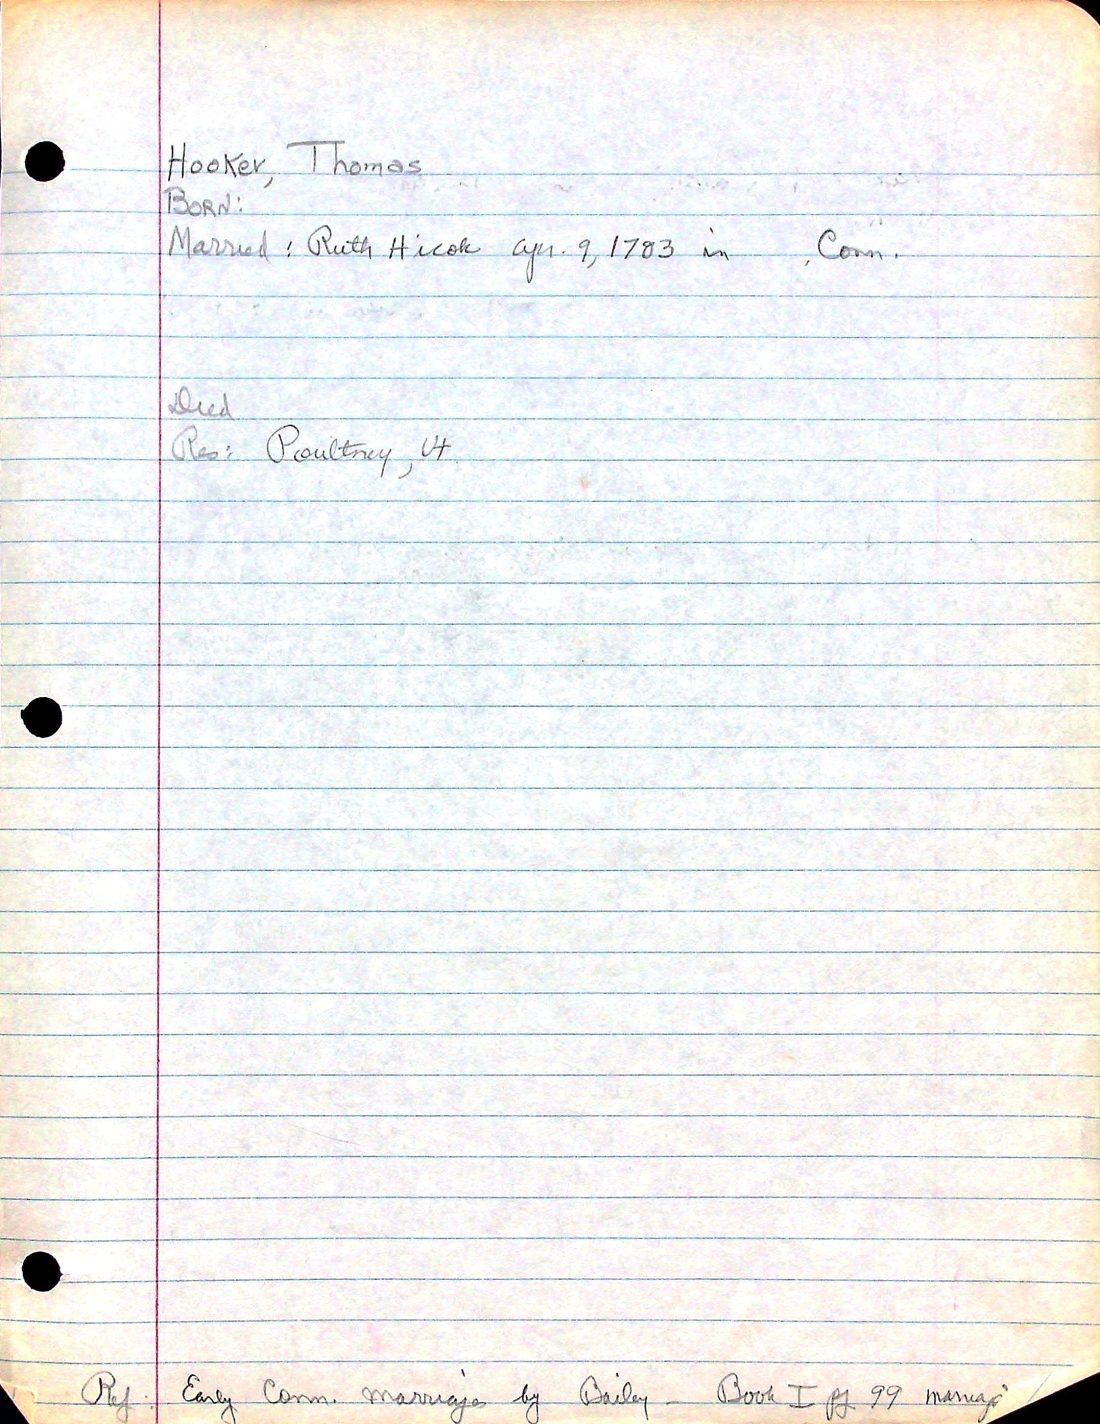 Hooker, Thomas
BORN:
Married: Ruth Hicok Apr. 9, 1783 in , Conn.
Died
Res: Poultney, Vt
Ref: Early Conn. Marriages by Bailey - Book I pg 99 marriage